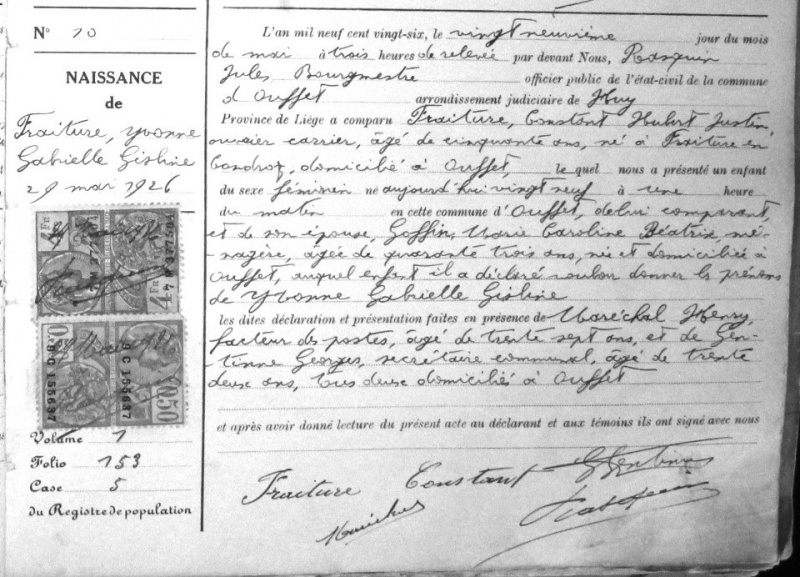 N° 10
NAISSANCE
de
Fraiture, Yvonne
Gabrielle Gisline
29 mai 1926
Volume 1
Folio 153
Case 5
du Registre de population
L'an mil neuf cent vingt-six, le vingt neuvième jour du mois
de mai à trois heures de relevée par devant Nous, Rasquin
Jules Bourgmestre officier public de l'état-civil de la commune
d'Ouffet arrondissement judiciaire de Huy
Province de Liège a comparu Fraiture, Constant Hubert Justin,
ouvrier carrier, âgé de cinquante ans, né à Fraiture en
Condroz, domicilié à Ouffet, le quel nous a présenté un enfant
du sexe féminin né aujourd'hui vingt neuf à une heure
du matin en cette commune d'Ouffet, de lui comparant
et de son épouse, Goffin, Marie Caroline Béatrix, mé-
nagère, âgée de quarante trois ans, née et domiciliée à
Ouffet, auquel enfant il a déclaré vouloir donner les prénoms
de Yvonne Gabrielle Gisline
les dites déclaration et présentation faites en présence de Maréchal Henry,
facteur des postes, âgé de trente sept ans, et de Gen-
tinne Georges, secrétaire communal, âgé de trente
deux ans, tous deux domiciliés à Ouffet
et après avoir donné lecture du présent acte au déclarant et aux témoins ils ont signé avec nous
Fraiture Constant